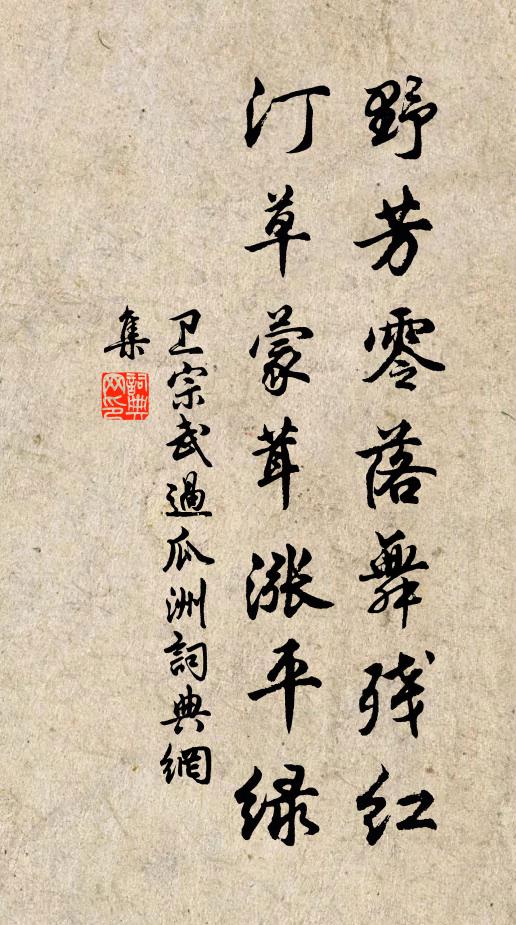 野芳零落舞残红
汀草蒙茸涨平绿
卫宗武過瓜洲詞典網
集
詞典
网印